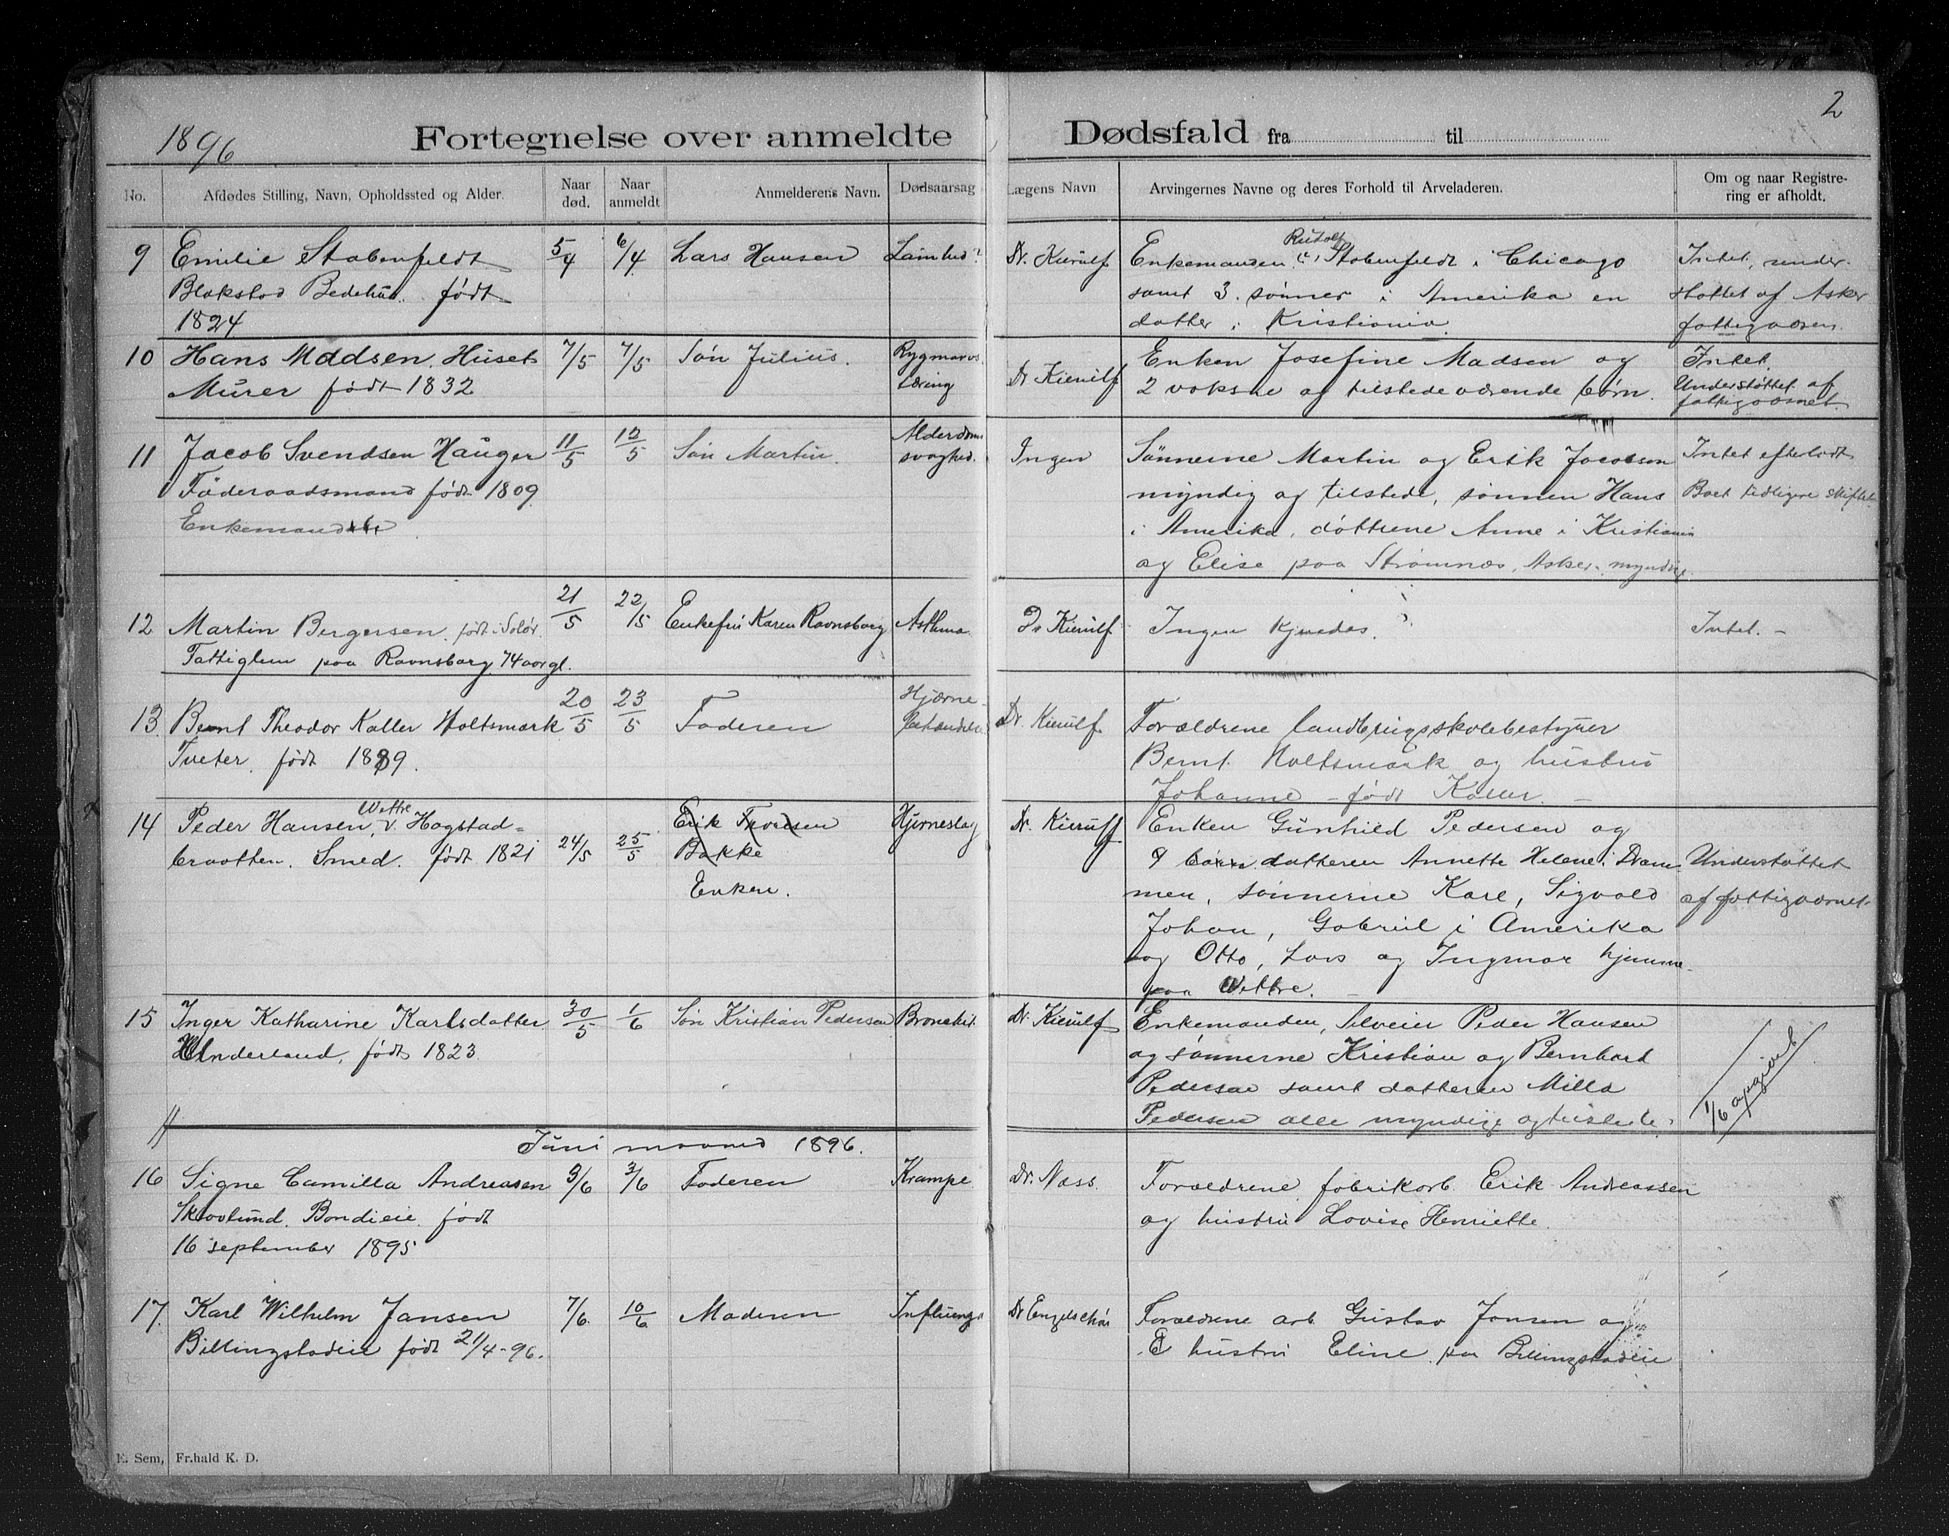 1896
Fortegnelse over anmeldte Dødsfald fra til
2
No.
Afdødes Stilling, Navn, Opholdssted og Alder.
Naar død.
Naar anmeldt
Anmelderens Navn.
Dødsaarsag
Lægens Navn
Arvingernes Navne og deres Forhold til Arveladeren.
Om og naar Registre-
ring er afholdt.
9 Emilie Stabenfeldt 5/4 6/4 Lars Hansen Lamhed? Dr. Kierulf Enkemanden Rudolf Stabenfeldt i Chicago Intet, under-
Blakstad Bedehus. født samt 3 sønner i Amerika en støttet af Asker
1824 datter i Kristiania. fattigvæsen
10 Hans Madsen. Huset 7/5 7/5 Søn Julius. Rygmarvs Dr Kierulf Enken Josefine Madsen og Intet.
Murer født 1832 tæring 2 voksne og tilstedeværende børn. Understøttet af
fattigvæsnet
11 Jacob Svendsen Hauger 11/5 12/5 Søn Martin. Alderdoms Ingen Sønnerne Martin og Erik Jacobsen Intet efterladt
Føderaadsmand født 1809. svaghed. myndig og tilstede, sønnen Hans Boet tidligere skiftet
Enkemand i Amerika, døttrene Anne i Kristiania
og Elise paa Strømnæs, Asker, myndige.
12 Martin Bergersen. født i Solør. 21/5 22/5 Enkefru Karen Ravnsborg Asthma Dr Kierulf Ingen Kjendes. Intet. -
Fattiglem paa Ravnsborg, 74 aar gl.
13 Bernt Theodor Kaller Holtsmark 20/5 23/5 Faderen Hjærne- Dr. Kierulf. Forældrene landbrugsskolebestyrer
Tveter. født 1889. Bernt Holtsmark og hustru
Johanne - født Kaller. -
14 Peder Hansen, Wettre v. Hogstad- 24/5 25/5 Erik Thoresen Hjerneslag Dr. Kierulf Enken Gunhild Pedersen og
braatten. Smed. født 1821 Bakke 9 børn. datteren Annette Helene i Dram- Understøttet
Enken. men, sønnerne Karl, Sigvald af fattigvæsnet.
Johan, Gabriel i Amerika
og Otto, Lars og Ingmar hjemme
paa Wettre. -
15 Inger Katharine Karlsdatter 30/5 1/6 Søn Kristian Pedersen Bronchit. Dr. Kierulf Enkemanden, Selveier Peder Hansen
Underland, født 1823. og sønnerne Kristian og Bernhard
Pedersen samt datteren Milla
Pedersen alle myndige og tilstede. 1/6 opgivet
Juni maaned 1896.
16 Signe Camilla Andreasen 3/6 3/6 Faderen Krampe Dr. Næss. Forældrene, fabrikarb. Erik Andreassen
Skovlund. Bondieie. født og hustru Lovise Henriette.
16 september 1895
17. Karl Wilhelm Jansen 7/6. 10/6 Moderen Influenza Dr Engelschiøn Forældrene arb. Gustav Jansen og
Billingstadeie født 21/4-96. hustru Eline paa Billingstadeie
E. Sem, Fr.hald K. D.